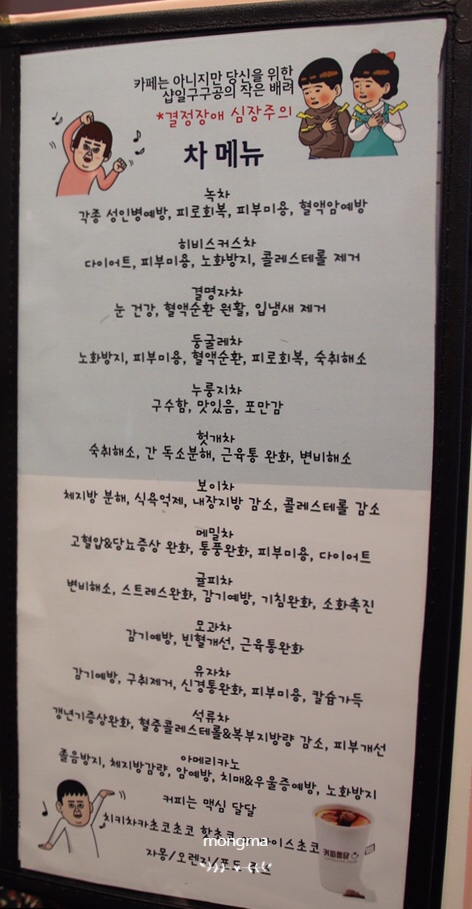 카페는 아니지만 당신을 위한
샵일구구공의 작은 배려
*결정장애 심장주의
차 메뉴
녹차
각종 성인병예방, 피로회복, 피부미용, 혈액암예방
히비스커스차
다이어트, 피부미용, 노화방지, 콜레스테롤 제거
결명자차
눈 건강, 혈액순환 원활, 입냄새 제거
둥굴레차
노화방지, 피부미용, 혈액순환, 피로회복, 숙취해소
누룽지차
구수함, 맛있음, 포만감
헛개차
숙취해소, 간 독소분해, 근육통 완화, 변비해소
보이차
체지방 분해, 식욕억제, 내장지방 감소, 콜레스테롤 감소
메밀차
고혈압&당뇨증상 완화, 통풍완화, 피부미용, 다이어트
귤피차
변비해소, 스트레스완화, 감기예방, 기침완화, 소화촉진
모과차
감기예방, 빈혈개선, 근육통완화
유자차
감기예방, 구취제거, 신경통완화, 피부미용, 칼슘가득
석류차
갱년기증상완화, 혈중콜레스테롤&복부지방량 감소, 피부개선
아메리카노
졸음방지, 체지방감량, 암예방, 치매&우울증예방, 노화방지
커피는 맥심 달달
치키차카초코초코 핫초코
mongma
자몽/오렌지/포도